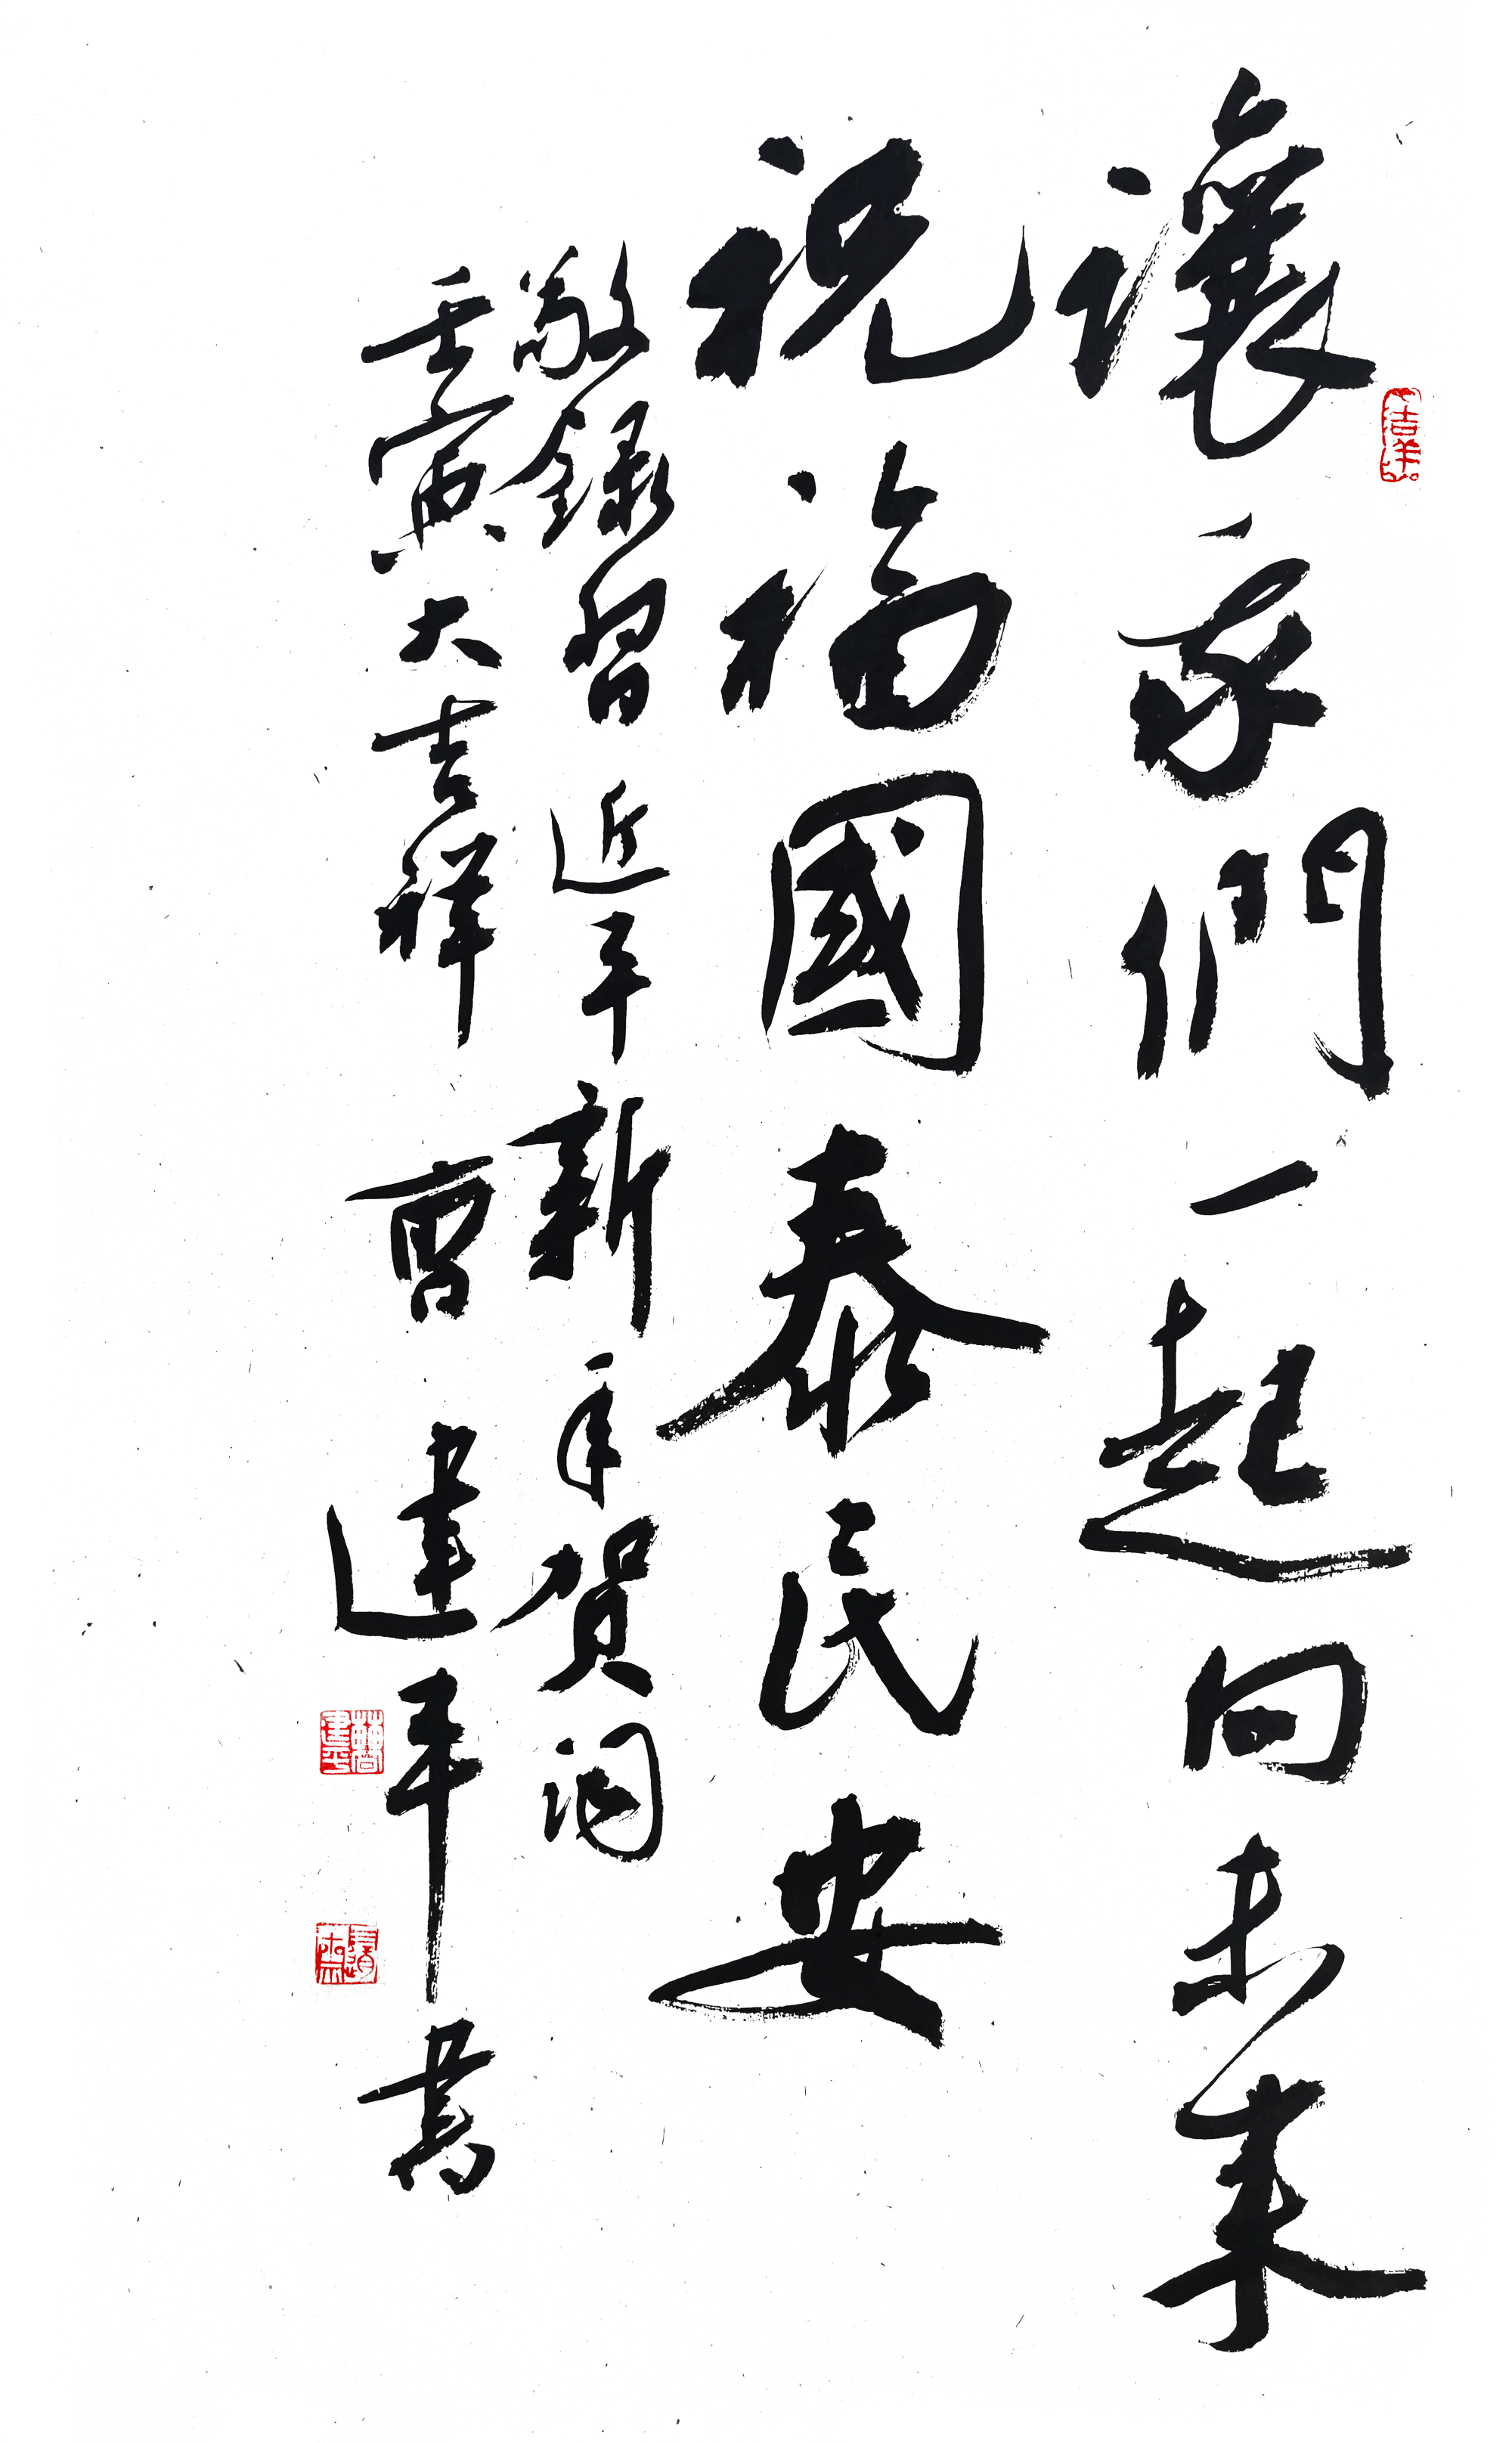 讓我們一起向未來
祝福國泰民安
敬録習近平新年賀词
壬寅大吉祥 曹建平書
吉羊